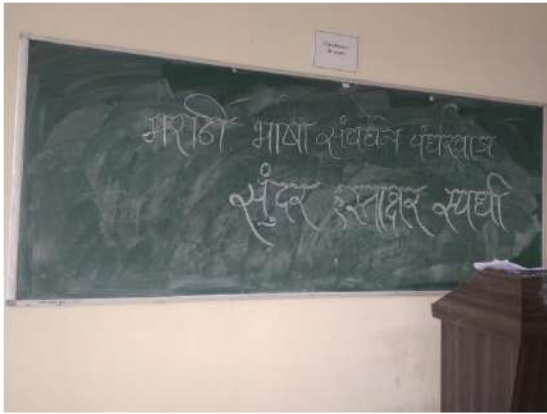 मराठी भाषा संवर्धन पंधरवाडा
सुंदर हस्ताक्षर स्पर्धा